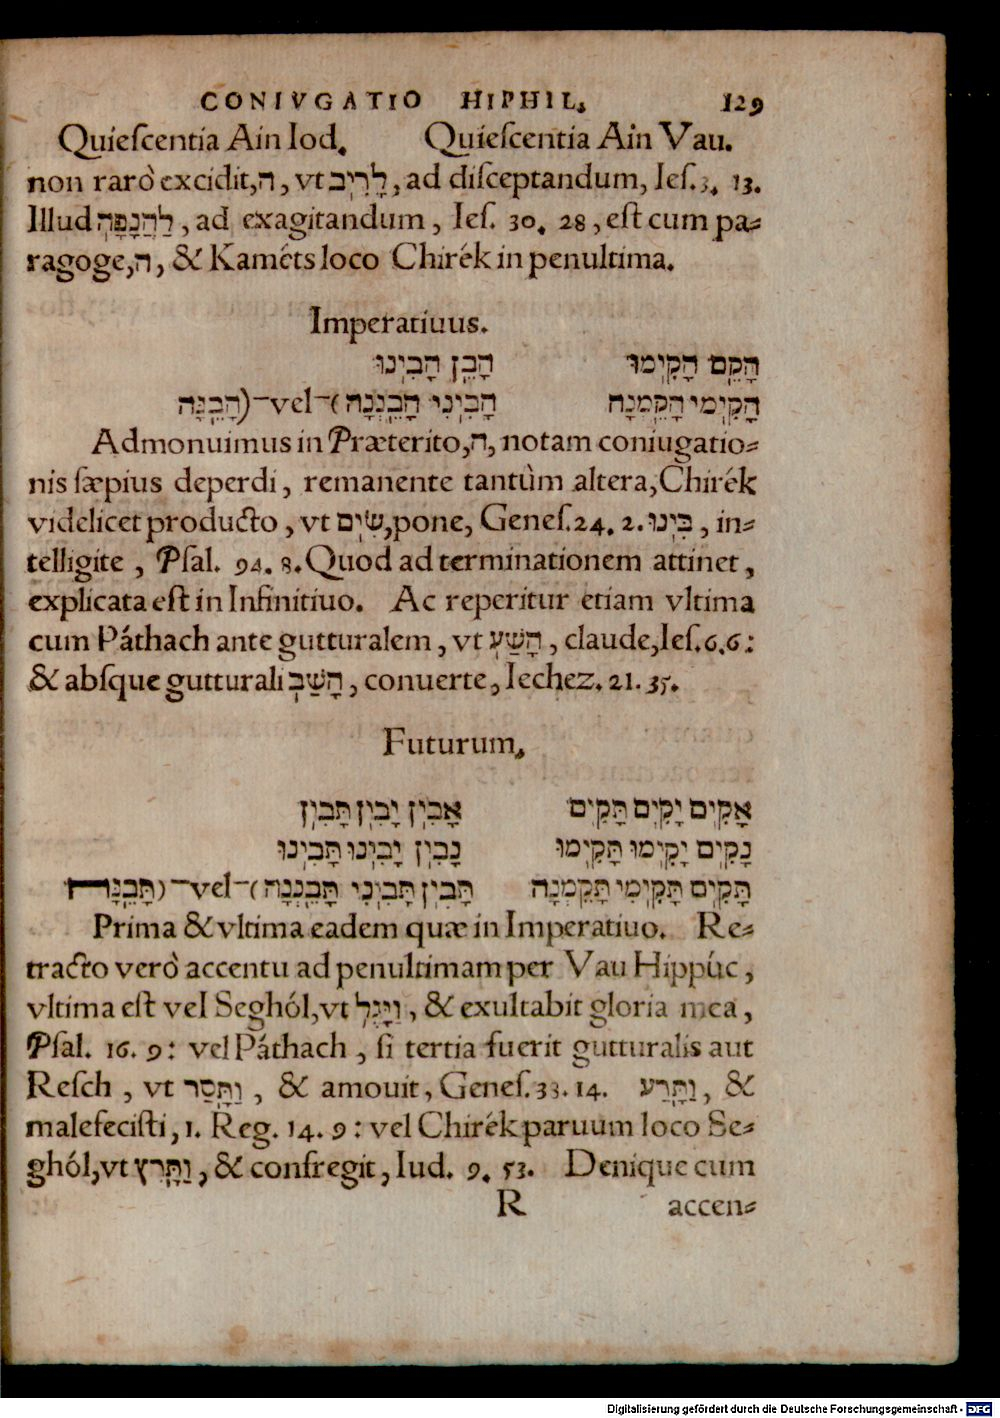 CONIVGATIO HIPHIL. 129
Quieſcentia Ain Iod. Quieſcentia Ain Vau.
non rarò excidit, ה, vt לָרִיב, ad diſceptandum, Ieſ. 3. 13.
Illud לַהֲנָפָה, ad exagitandum, Ieſ. 30. 28, eſt cum pa⸗
ragoge, ה, & Kaméts loco Chirék in penultima.
Imperatiuus.
הָקֵם הָקִימוּ הָבֵן הָבִינוּ
הָקִימִי הָקֵמְנָה הָבִינִי הָבֵנְנָה (‒vel‒) הָבֵנָּה
Admonuimus in Præterito, ה, notam coniugatio⸗
nis ſæpius deperdi, remanente tantùm altera, Chirék
videlicet producto, vt שִׂים, pone, Geneſ. 24. 2. בִּינוּ, in⸗
telligite, Pſal. 94. 8. Quod ad terminationem attinet,
explicata eſt in Infinitiuo. Ac reperitur etiam vltima
cum Páthach ante gutturalem, vt הָשַׁע, claude, Ieſ. 6. 6:
& abſque gutturali הָשַׁב, conuerte, Iechez. 21. 35.
Futurum.
אָקִים יָקִים תָּקִים אָבִין יָבִין תָּבִין
נָקִים יָקִימוּ תָּקִימוּ נָבִין יָבִינוּ תָּבִינוּ
תָּקִים תָּקִימִי תָּקֵמְנָה תָּבִין תָּבִינִי תָּבֵנְנָה (‒vel‒) תָּבֵנָּה
Prima & vltima eadem quæ in Imperatiuo. Re⸗
tracto verò accentu ad penultimam per Vau Hippùc,
vltima eſt vel Seghól, vt וַיָּגֶל, & exultabit gloria mea,
Pſal. 16. 9: vel Páthach, ſi tertia fuerit gutturalis aut
Reſch, vt וַתָּסַר, & amouit, Geneſ. 33. 14. וַתָּרַע, &
malefeciſti, 1. Reg. 14. 9: vel Chirék paruum loco Se⸗
ghól, vt וַתָּרִץ, & confregit, Iud. 9. 53. Denique cum
R accen⸗
Digitalisierung gefördert durch die Deutsche Forschungsgemeinschaft - DFG